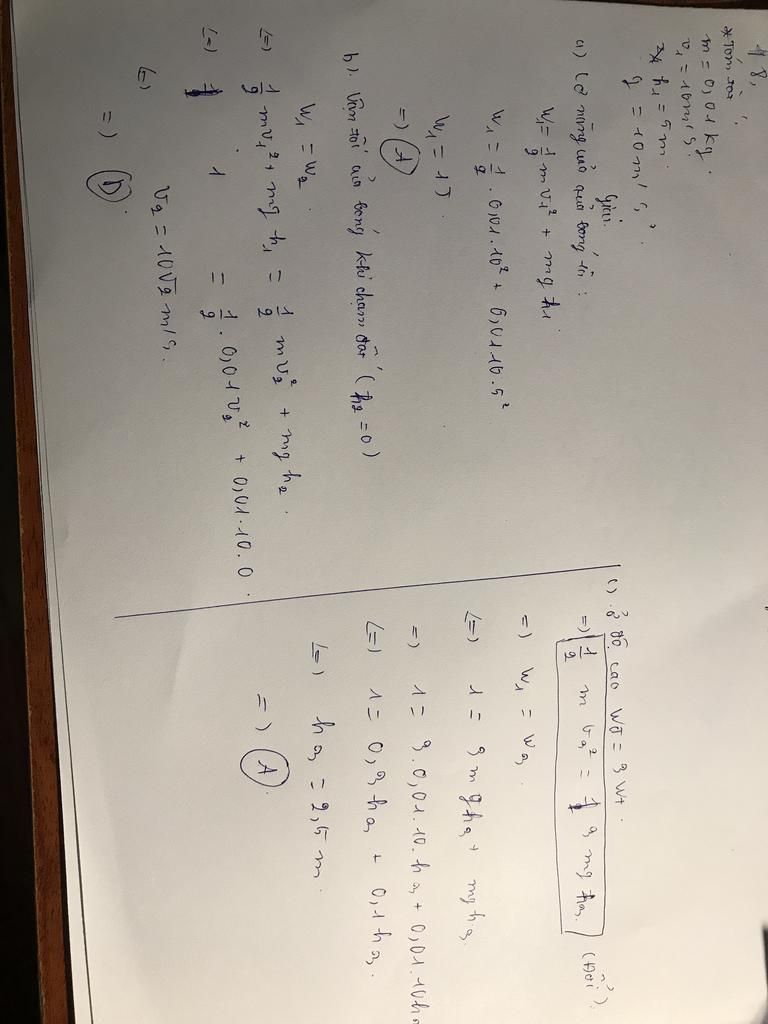 18,
* Tóm tắt
m = 0,01 kg.
v₁ = 10 m/s.
h₁ = 5 m.
g = 10 m/s².
Giải.
a) Cơ năng của quả bóng là :
W₁ = 1/2 m v₁² + mg h₁
W₁ = 1/2 . 0,01 . 10² + 0,01 10 . 5²
W₁ = 1 J.
=> A
b). Vận tốc của bóng khi chạm đất (h₂ = 0)
W₁ = W₂
(=) 1/2 m v₁² + mg h₁ = 1/2 m v₂² + mg h₂.
(=) 1 = 1/2 . 0,01 v₂² + 0,01 . 10 . 0.
(=) v₂ = 10√2 m/s.
=) D.
c). ở độ cao Wđ = 3 Wt.
=> 1/2 m v₃² = 3 mg h₃.
=) W₁ = W₃.
(=) 1 = 3 mg h₃ + mg h₃
=) 1 = 3 . 0,01 . 10 . h₃ + 0,01 . 10 h₃
(=) 1 = 0,3 h₃ + 0,1 h₃.
(=) h₃ = 2,5 m.
=) A.